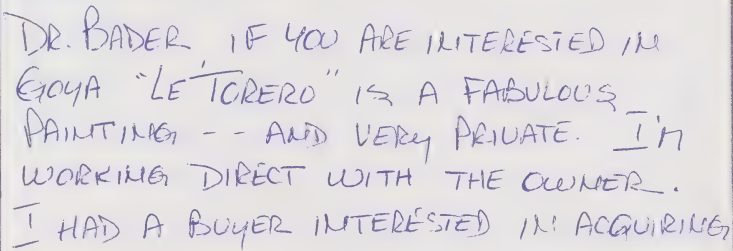 DR. BADER, IF YOU ARE INTERESTED IN
GOYA "LE TORERO" IS A FABULOUS
PAINTING -- AND VERY PRIVATE. I'M
WORKING DIRECT WITH THE OWNER.
I HAD A BUYER INTERESTED IN ACQUIRING